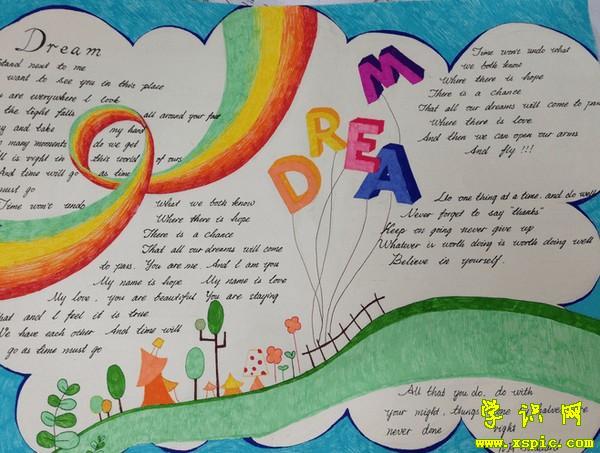 Dream
stand next to me
want to see you in this place
are everywhere I look
the light falls all around your feet
and take my hand
many moments do we get
all is right in this world of ours
And time will go as time
must go
Time won't undo what we both know
Where there is hope
There is a chance
That all our dreams will come
to pass. You are me. And I am you
My name is hope My name is love
My love, you are beautiful You are staying
that and I feel it is true
We have each other And time will
go as time must go
DREAM
Time won't undo what
we both know
Where there is hope
There is a chance
That all our dreams will come to pass
Where there is love
And then we can open our arms
And fly!!!
one thing at a time, and do well
Never forget to say "thanks"
Keep on going never give up
Whatever is worth doing is worth doing well
Believe in yourself.
All that you do, do with
your might, things done
never done right
学识网
www.xspic.com